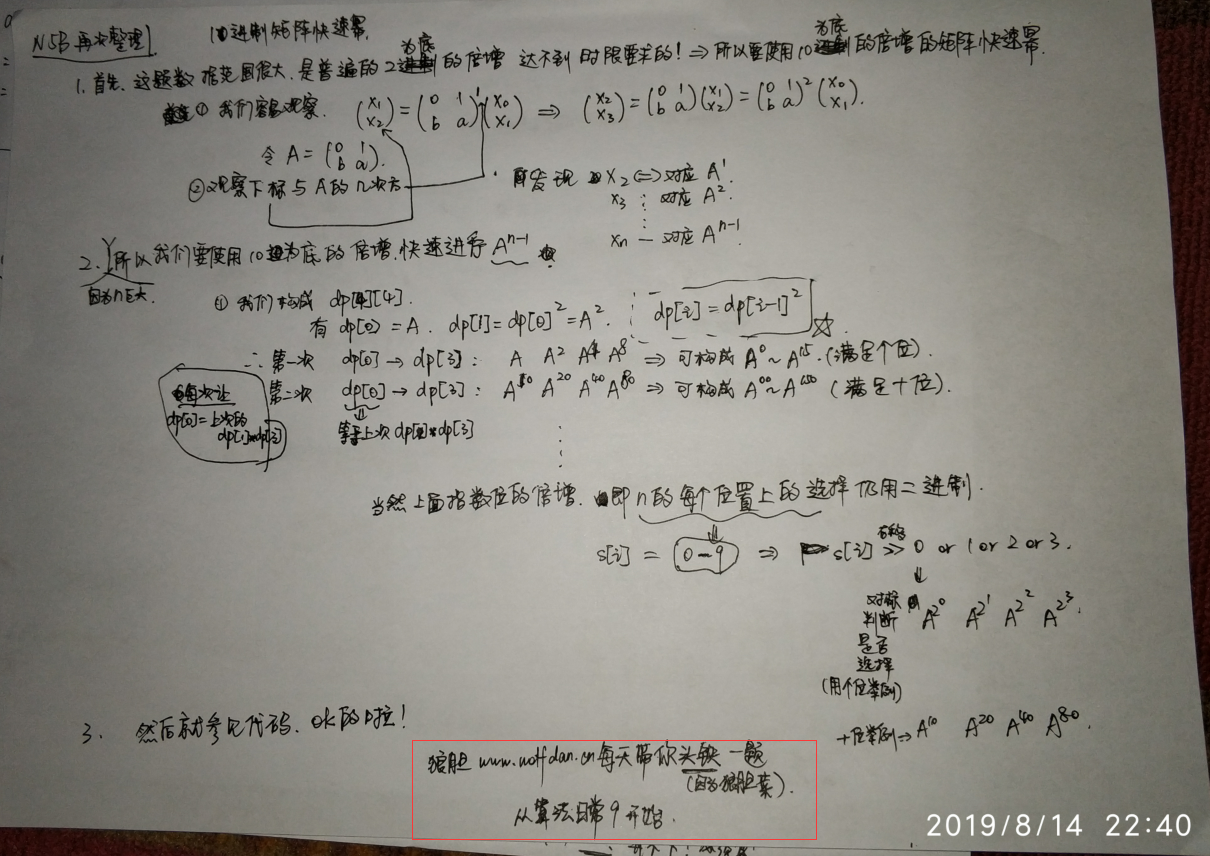 N5B 再次整理 10进制矩阵快速幂
1. 首先、这题数据范围很大、是普遍的2为底的倍增 达不到时限要求的! ⇒ 所以要使用10为底的倍增的矩阵快速幂.
① 我们容易观察. (x₁ x₂) = (0 1 b a)¹(x₀ x₁) ⇒ (x₂ x₃) = (0 1 b a)(x₁ x₂) = (0 1 b a)²(x₀ x₁).
令 A = (0 1 b a).
② 观察下标与A的几次方
发现 x₂ ⇔ 对应 A¹.
x₃ ⋮ 对应 A².
xₙ — 对应 Aⁿ⁻¹.
2. 所以我们要使用10为底的倍增.快速进行 Aⁿ⁻¹
因为n巨大.
① 我们构成 dp[4][4].
有 dp[0] = A. dp[1] = dp[0]² = A². dp[i] = dp[i-1]² ☆.
∴ 第一次 dp[0] → dp[3] : A A² A⁴ A⁸ ⇒ 可构成 A⁰ ~ A¹⁵. (满足个位).
第二次 dp[0] → dp[3] : A¹⁰ A²⁰ A⁴⁰ A⁸⁰ ⇒ 可构成 A⁰⁰ ~ A¹⁵⁰ (满足十位).
每次让
dp[0] = 上次的
dp[1]*dp[3]
等于上次 dp[1]*dp[3]
当然上面指数位的倍增. 即n的每个位置上的选择仍用二进制.
s[i] = 0-9 ⇒ s[i] >> 0 or 1 or 2 or 3.
右移
对标
判断
是否
选择
(用个位举例)
A^2⁰ A^2¹ A^2² A^2³.
十位举例 ⇒ A¹⁰ A²⁰ A⁴⁰ A⁸⁰.
3. 然后就参见代码、ok的啦!
狼胆 www.wolfdan.cn 每天带你头铁一题
(因为狼胆菜).
从算法日常9开始.
2019/8/14 22:40